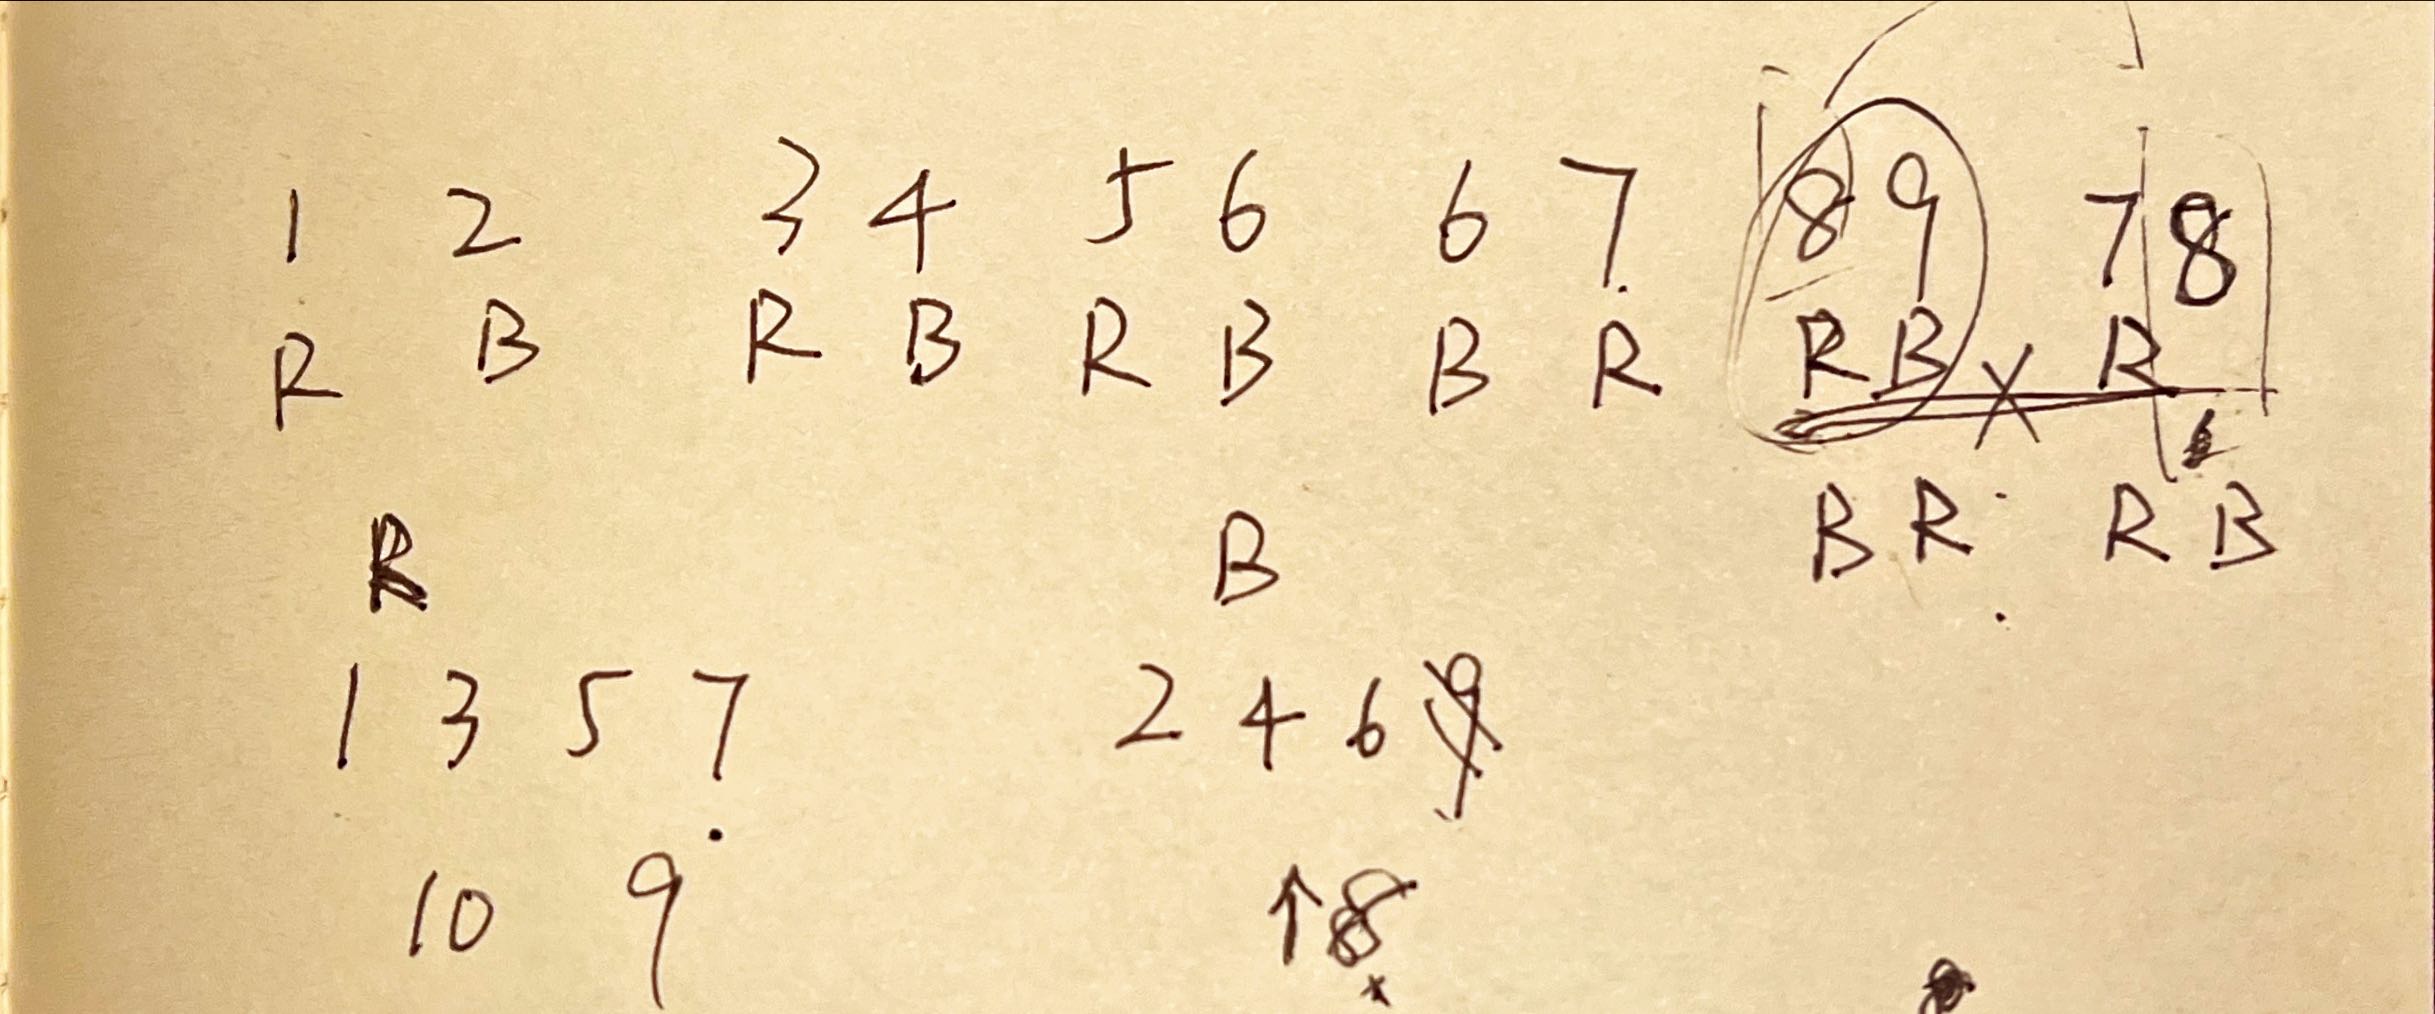 1 2 3 4 5 6 6 7 8 9 7 8
R B R B R B B R R B X R
B R R B
R B
1 3 5 7 2 4 6 9
10 9 ↑ 8